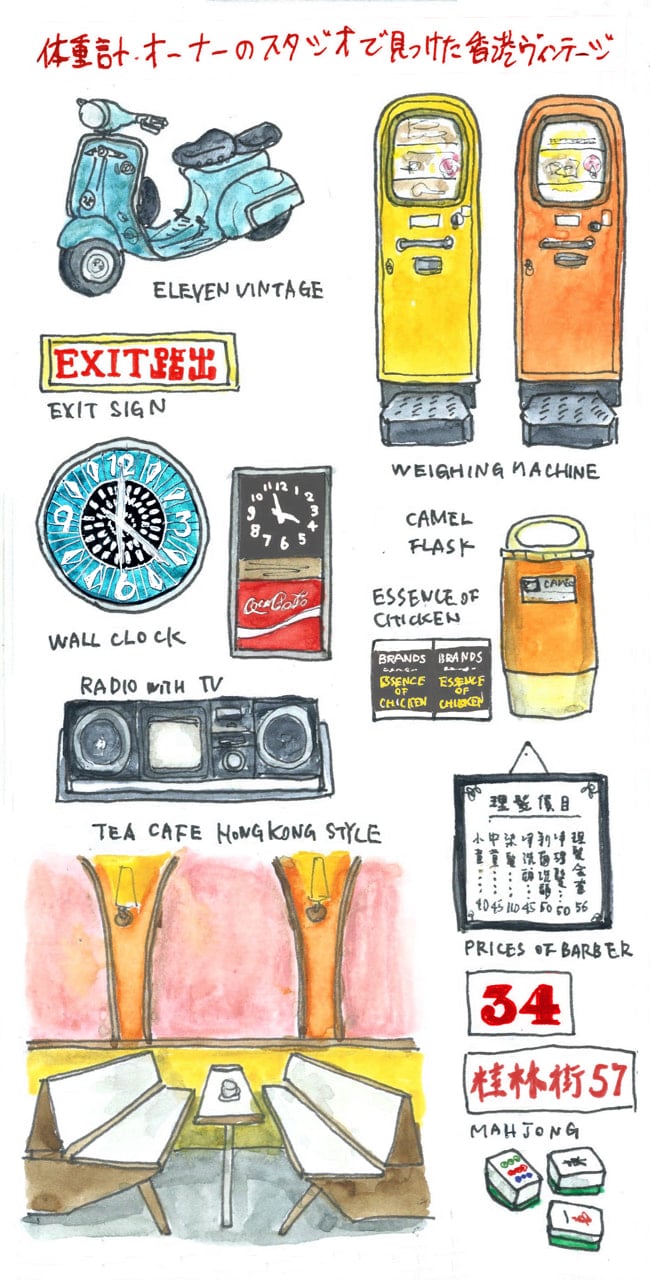 体重計・オーナーのスタジオで見つけた香港ヴィンテージ
ELEVEN VINTAGE
EXIT踏出
EXIT SIGN
WEIGHING MACHINE
12
3
6
9
WALL CLOCK
11 12 1
10 2
9 3
8 4
7 6 5
Coca-Cola
CAMEL
FLASK
CAMEL
ESSENCE OF
CHICKEN
BRANDS
ESSENCE
OF
CHICKEN
BRANDS
ESSENCE
OF
CHICKEN
RADIO WITH TV
TEA CAFE HONGKONG STYLE
理髮價目
40 45 110 45 50 50 56
PRICES OF BARBER
34
桂林街57
MAHJONG